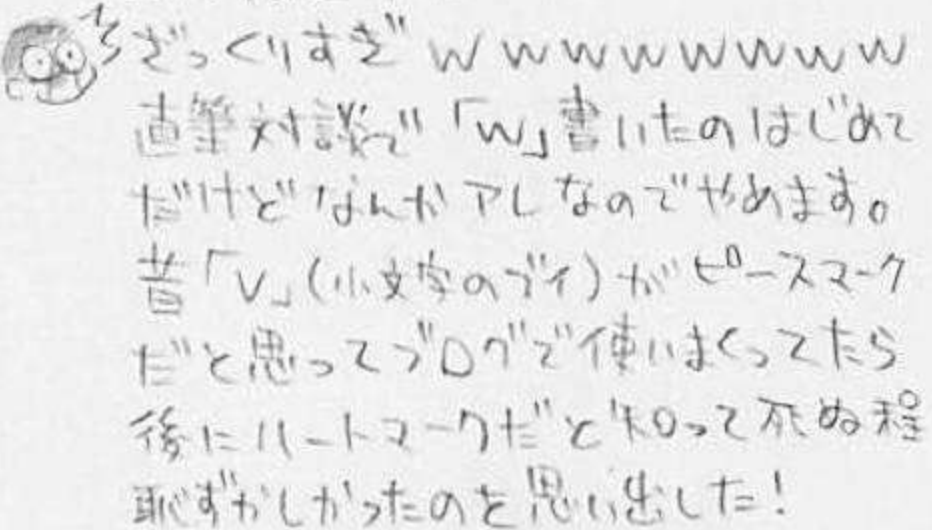 ざっくりすぎwwwwwwww
直筆対談で「w」書いたのはじめて
だけどなんかアレなのでやめます。
昔「v」(小文字のブイ)がピースマーク
だと思ってブログで使いまくってたら
後にハートマークだと知って死ぬ程
恥ずかしかったのを思い出した!